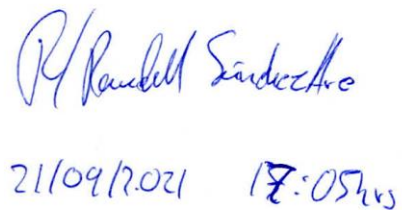 P/ Randall Sánchez Are
21/09/2021 17:05hrs